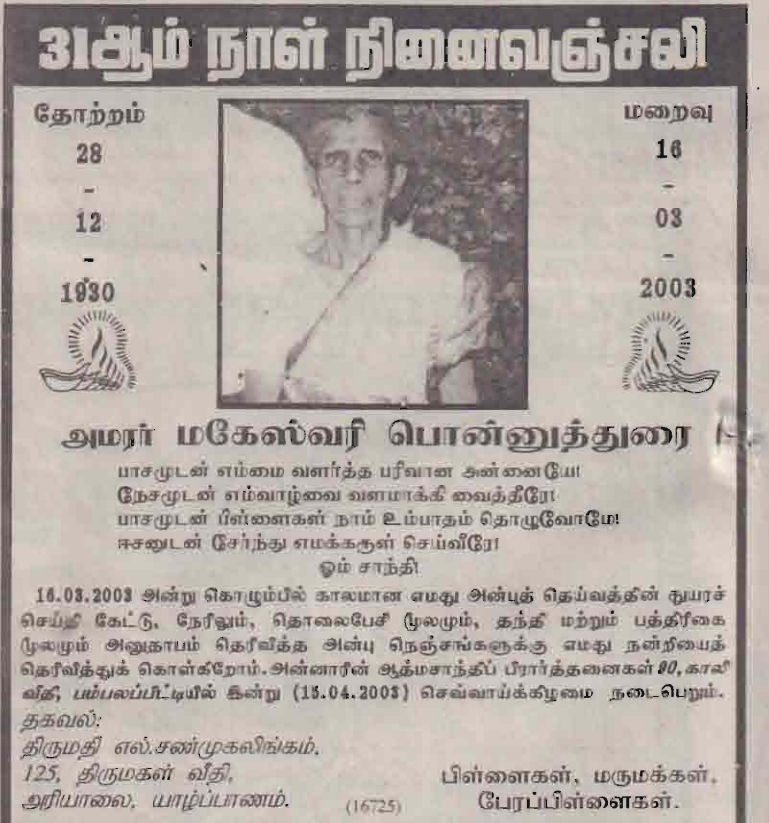 31ஆம் நாள் நினைவஞ்சலி
தோற்றம்
28
-
12
-
1930
மறைவு
16
-
03
-
2003
அமரர் மகேஸ்வரி பொன்னுத்துரை
பாசமுடன் எம்மை வளர்த்த பரிவான அன்னையே!
நேசமுடன் எம்வாழ்வை வளமாக்கி வைத்தீரே!
பாசமுடன் பிள்ளைகள் நாம் உம்பாதம் தொழுவோமே!
ஈசனுடன் சேர்ந்து எமக்கருள் செய்வீரே!
ஓம் சாந்தி!
16.03.2003 அன்று கொழும்பில் காலமான எமது அன்புத் தெய்வத்தின் துயரச்
செய்தி கேட்டு, நேரிலும், தொலைபேசி மூலமும், தந்தி மற்றும் பத்திரிகை
மூலமும் அனுதாபம் தெரிவித்த அன்பு நெஞ்சங்களுக்கு எமது நன்றியைத்
தெரிவித்துக் கொள்கிறோம். அன்னாரின் ஆத்மசாந்திப் பிரார்த்தனைகள் 90, காலி
வீதி, பம்பலப்பிட்டியில் இன்று (15.04.2003) செவ்வாய்க்கிழமை நடைபெறும்.
தகவல்:
திருமதி எல்.சண்முகலிங்கம்,
125, திருமகள் வீதி,
அரியாலை, யாழ்ப்பாணம்.
(16725)
பிள்ளைகள், மருமக்கள்,
பேரப்பிள்ளைகள்.